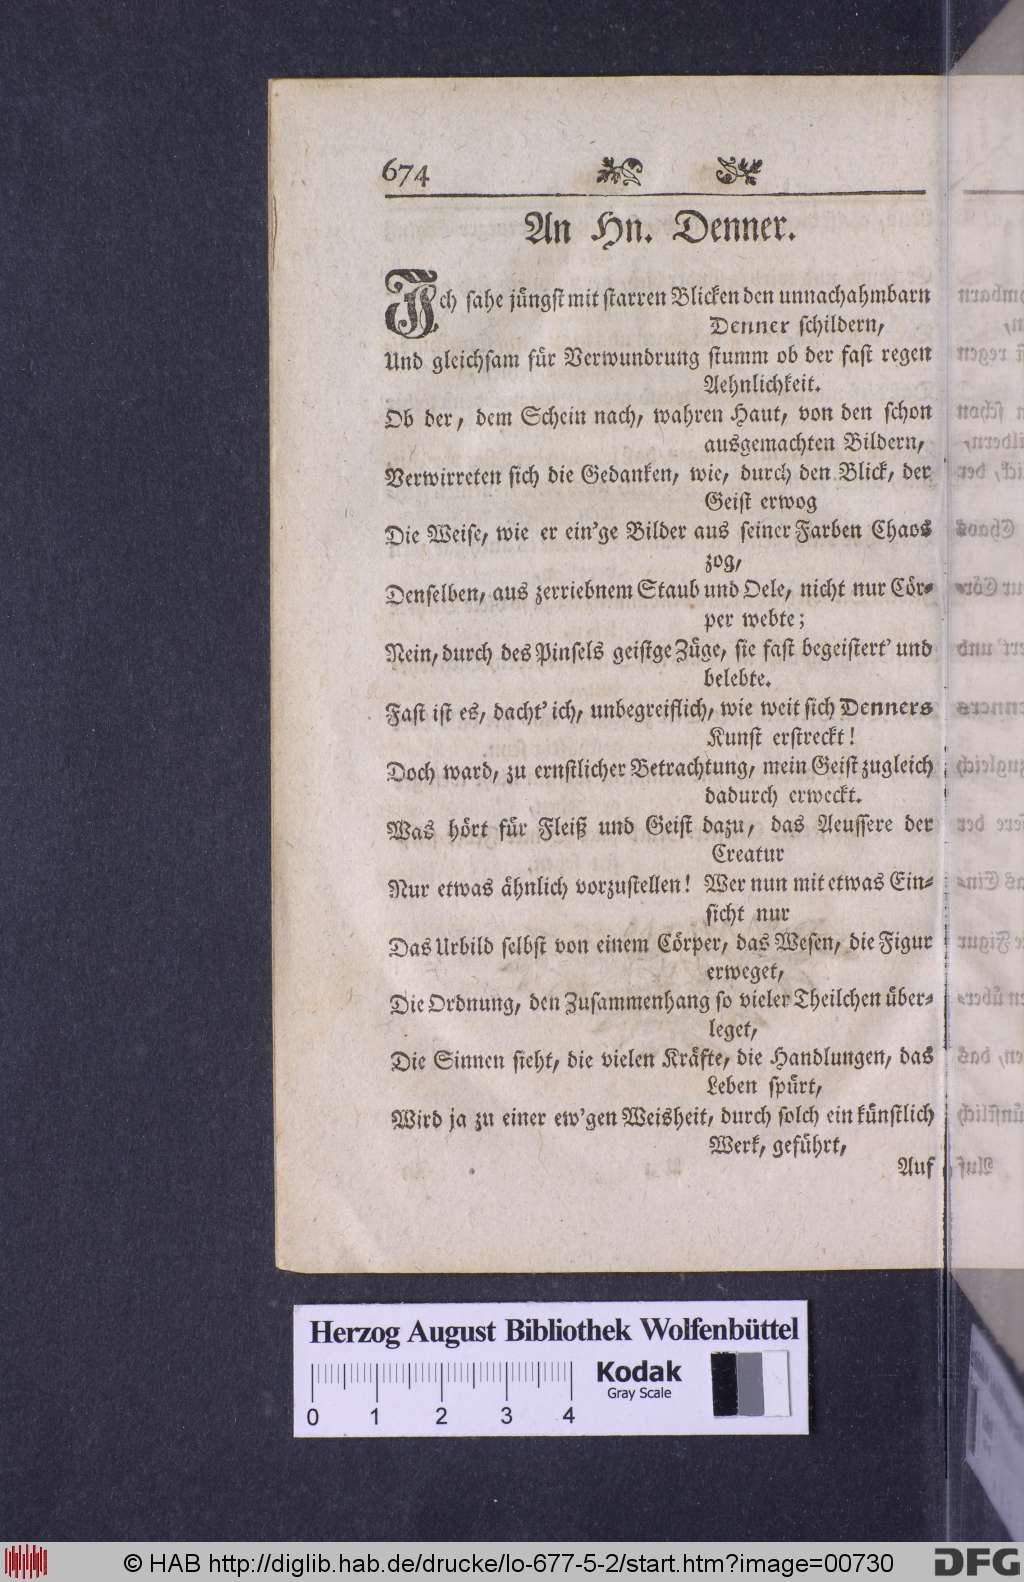 674
An Hn. Denner.
Ich sahe jüngst mit starren Blicken den unnachahmbarn
Denner schildern,
Und gleichsam für Verwundrung stumm ob der fast regen
Aehnlichkeit.
Ob der, dem Schein nach, wahren Haut, von den schon
ausgemachten Bildern,
Verwirreten sich die Gedanken, wie, durch den Blick, der
Geist erwog
Die Weise, wie er ein'ge Bilder aus seiner Farben Chaos
zog,
Denselben, aus zerriebnem Staub und Oele, nicht nur Cör-
per webte;
Nein, durch des Pinsels geistge Züge, sie fast begeistert' und
belebte.
Fast ist es, dacht' ich, unbegreiflich, wie weit sich Denners
Kunst erstreckt!
Doch ward, zu ernstlicher Betrachtung, mein Geist zugleich
dadurch erweckt.
Was hört für Fleiß und Geist dazu, das Aeussere der
Creatur
Nur etwas ähnlich vorzustellen! Wer nun mit etwas Ein-
sicht nur
Das Urbild selbst von einem Cörper, das Wesen, die Figur
erweget,
Die Ordnung, den Zusammenhang so vieler Theilchen über-
leget,
Die Sinnen sieht, die vielen Kräfte, die Handlungen, das
Leben spürt,
Wird ja zu einer ew'gen Weisheit, durch solch ein künstlich
Werk, geführt,
Auf
Herzog August Bibliothek Wolfenbüttel
Kodak
Gray Scale
0 1 2 3 4
© HAB http://diglib.hab.de/drucke/lo-677-5-2/start.htm?image=00730
DFG